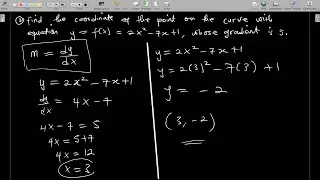 ③ find the coordinate of the point on the curve with
equation y = f(x) = 2x² - 7x + 1, whose gradient is 5.
m = dy/dx
y = 2x² - 7x + 1
dy/dx = 4x - 7
4x - 7 = 5
4x = 5 + 7
4x = 12
x = 3
y = 2x² - 7x + 1
y = 2(3)² - 7(3) + 1
y = - 2
(3, -2)